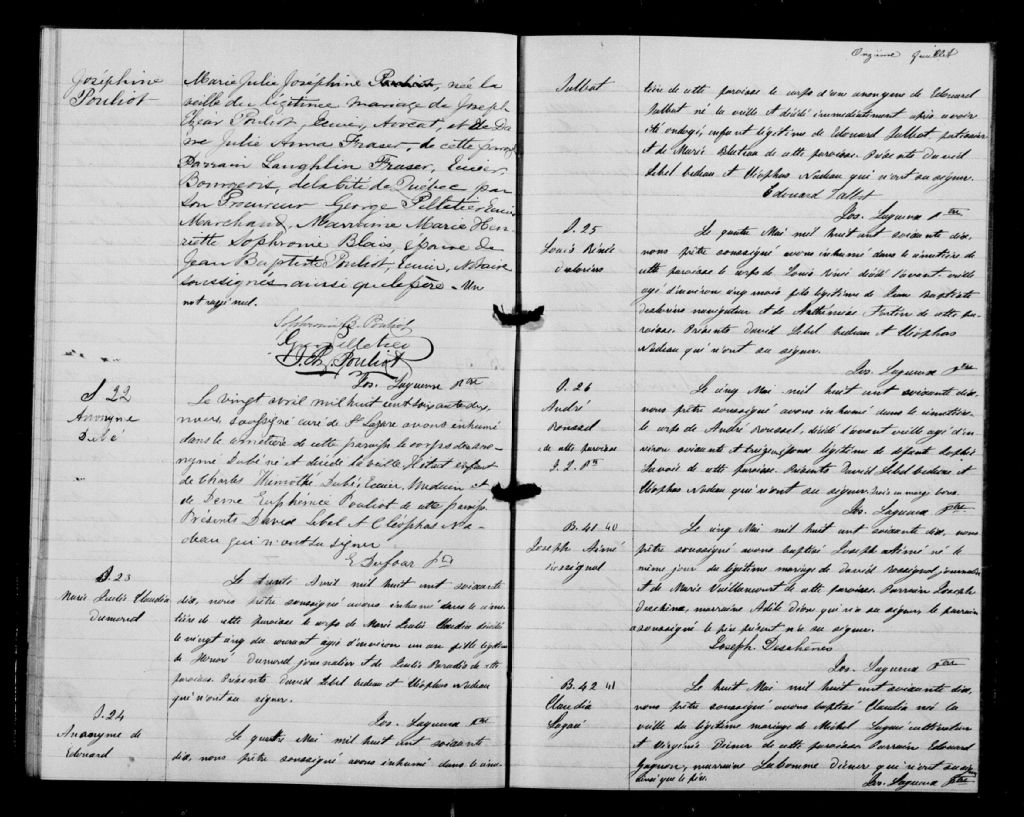 Joséphine
Pouliot
Marie Julie Joséphine Pouliot, née la
veille du légitime mariage de Joseph
Pouliot, Ecuier, Avocat, et de Da
me Julie Anna Fraser, de cette
Parrain Laughlin Fraser, Ecuier,
Bourgeois, de la Cité de Québec par
son Procureur George Pelletier Ecuier
Marchand, Marraine Marie Hen
riette Sophronie Blais, épouse de
Jean Baptiste Pouliot, Ecuier, Notaire
soussignés aussi que le père. Un
mot rayé nul.
Sophronie B. Pouliot
Geo Pelletier
J. Bte. Pouliot
Jos. Lagueux Ptre
S 22
Anonyme
Dubé
Le vingt avril mil huit cent soixante dix,
nous, soussigné curé de St Lazare avons inhumé
dans le cimetière de cette paroisse le corps d'un ano
nyme Dubé né et décédé la veille, enfant
de Charles Thimothé Dubé, Ecuier, Médecin et
de Dame Euphémie Pouliot de cette paroisse.
Présents David Lebel et Cléophas Na
deau qui n'ont su signer
E. Dufour Ptre
S. 23
Marie Louise Claudia
Dumond
Le trente Avril mil huit cent soixante
dix, nous prêtre soussigné avons inhumé dans le cime
tière de cette paroisse le corps de Marie Claudia décédé
le vingt cinq du courant agée d'environ un an fille légitime
de Honoré Dumond journalier et de Paradis de cette
paroisse. Présents David Lebel bedeau et Cléophas Nadeau
qui n'ont su signer.
Jos. Lagueux Ptre
S. 24
Anonyme de
Edouard
Le quatre Mai mil huit cent soixante
dix, nous prêtre soussigné avons inhumé dans le cime
Onzième feuillet
Talbot
tière de cette paroisse le corps d'un anonyme de Edouard
Talbot né la veille et décédé immédiatement après avoir
été ondoyé, enfant légitime de Edouard Talbot
et de Marie Bluteau de cette paroisse. Présents David
Lebel bedeau et Cléophas Nadeau qui n'ont su signer.
Edouard Talbot
Jos. Lagueux Ptre
S. 25
Louis Réné
Desbriens
Le quatre Mai mil huit cent soixante dix,
nous prêtre soussigné avons inhumé dans le cimetière de
cette paroisse le corps de Louis Réné décédé l'avant-veille
agé d'environ cinq mois fils légitime de Jean Baptiste
navigateur et de Fortin de cette pa
roisse. Présents David Lebel bedeau et Cléophas
Nadeau qui n'ont su signer.
Jos. Lagueux Ptre
S. 26
André
Roussel
de cette paroisse
J. L. Ptre
Le cinq Mai mil huit cent soixante dix,
nous prêtre soussigné avons inhumé dans le cimetière
le corps de André Roussel, décédé l'avant veille agé d'en
viron soixante et treize ans, légitime de défunt Sophie
Savoie de cette paroisse. Présents David Lebel bedeau et
Cléophas Nadeau qui n'ont su signer. Trois en marge bons.
Jos. Lagueux Ptre
B. 41 40
Joseph Aimé
Rossignol
Le cinq Mai mil huit cent soixante dix, nous
prêtre soussigné avons baptisé Joseph Aimé né le
même jour du légitime mariage de David Rossignol, journalier
et de Marie Vaillancourt de cette paroisse. Parrain Joseph
Deschênes, marraine Adèle Dion qui n'a su signer, le parrain
a soussigné le père présent n'a su signer.
Joseph Deschênes
Jos. Lagueux Ptre
B. 42 41
Claudia
Gagné
Le huit Mai mil huit cent soixante dix,
nous prêtre soussigné avons baptisé Claudia née la
veille du légitime mariage de Michel Gagné cultivateur
et Virginie Deiner de cette paroisse. Parrain Edouard
Gagnon, marraine Diener qui n'ont su signer
ainsi que le père.
Jos. Lagueux Ptre